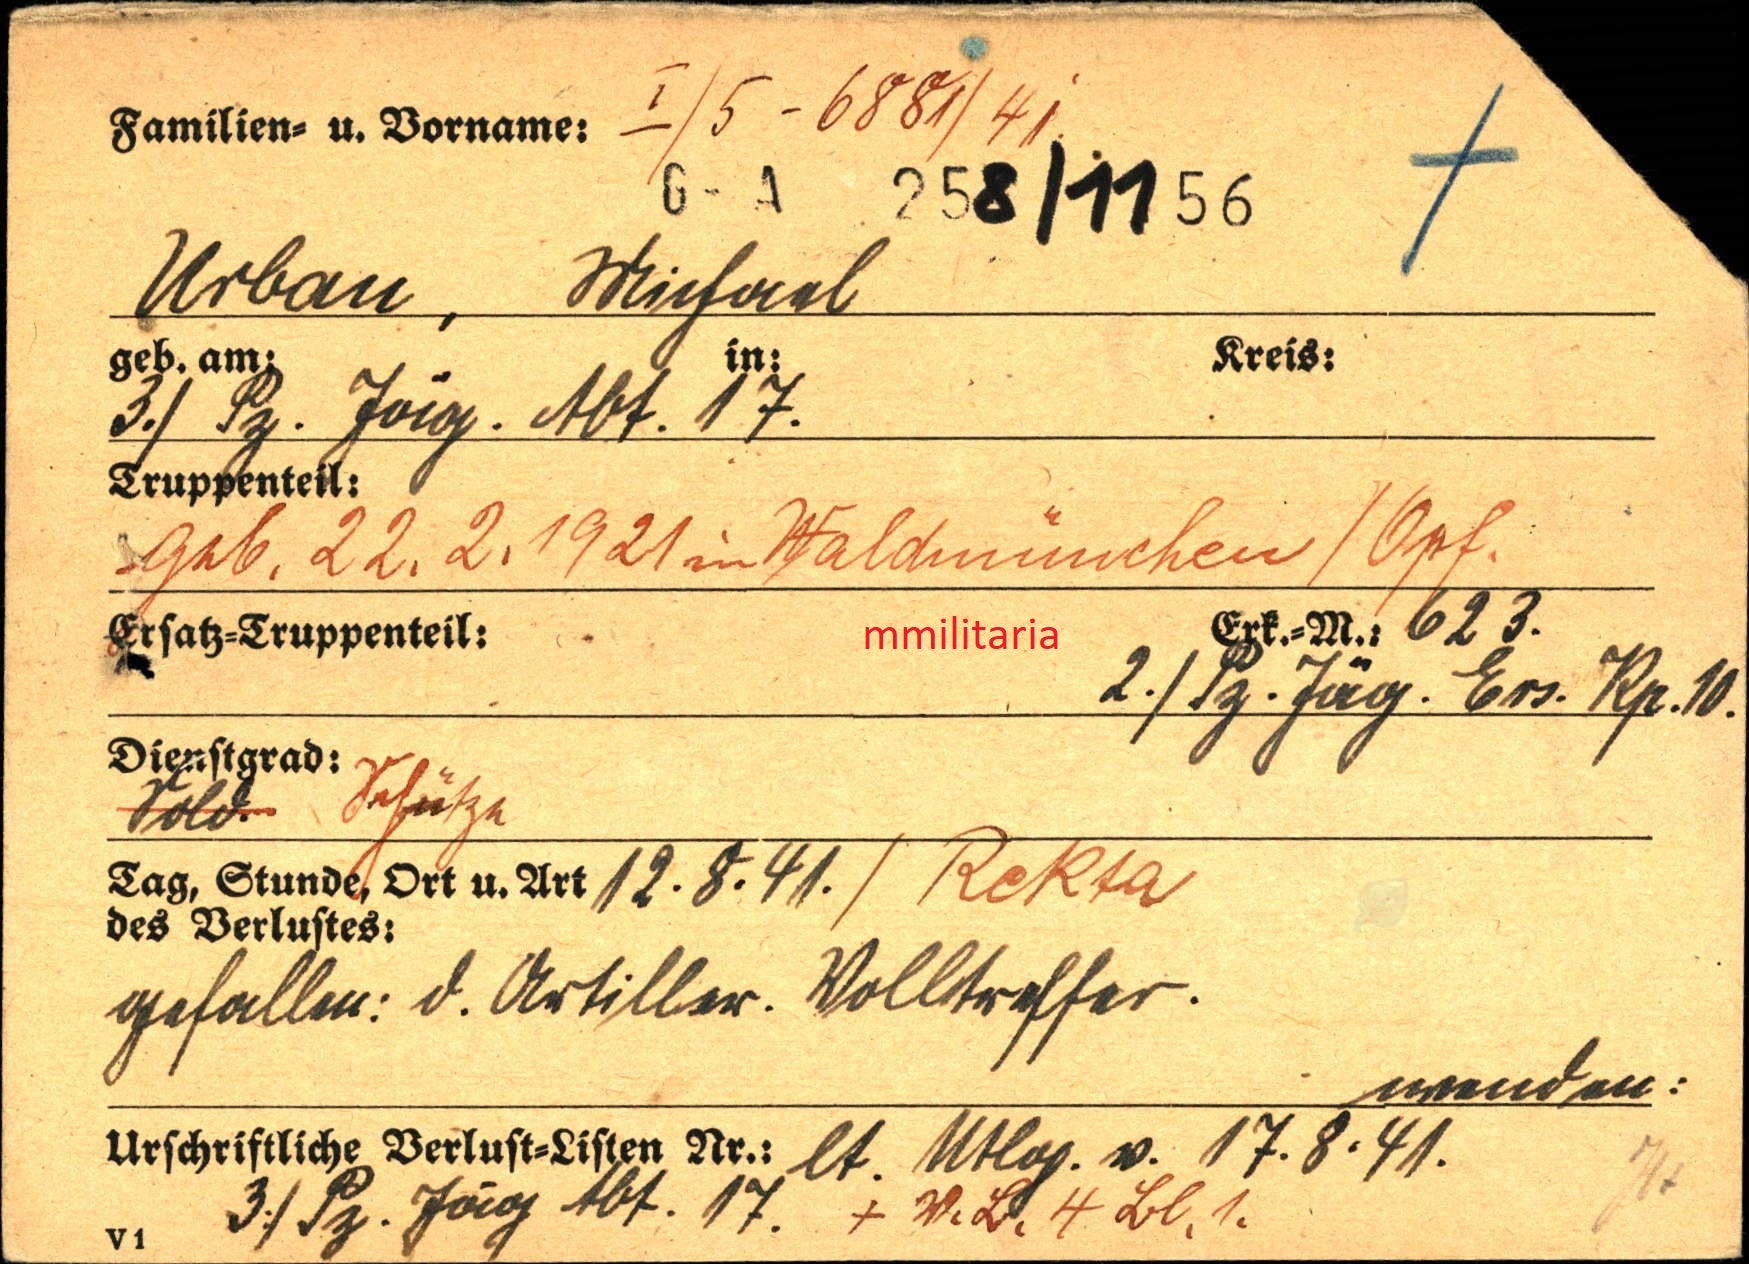 Familien- u. Vorname: I/5 - 6881/41
G - A 258/1156
Urban, Michael
geb. am: in: Kreis:
3./ Pz. Jäg. Abt. 17.
Truppenteil:
geb. 22. 2. 1921 in Waldmünchen / Opf.
Ersatz-Truppenteil: Erk.-M.: 623.
mmilitaria
2./ Pz. Jäg. Ers. Kp. 10.
Dienstgrad:
Sold. Schütze
Tag, Stunde, Ort u. Art 12. 8. 41. / Rekta
des Verlustes:
gefallen: d. Artiller. Volltreffer.
wenden:
Urschriftliche Verlust-Listen Nr.: lt. Mtlg. v. 17. 8. 41.
3./ Pz. Jäg Abt. 17. + V. L. 4 Bl. 1.
V 1